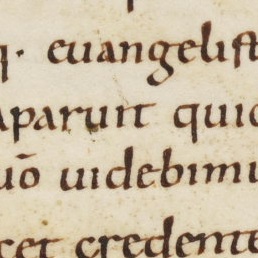 q· euangelist
aparuit quid
uō uidebimu
cet credente